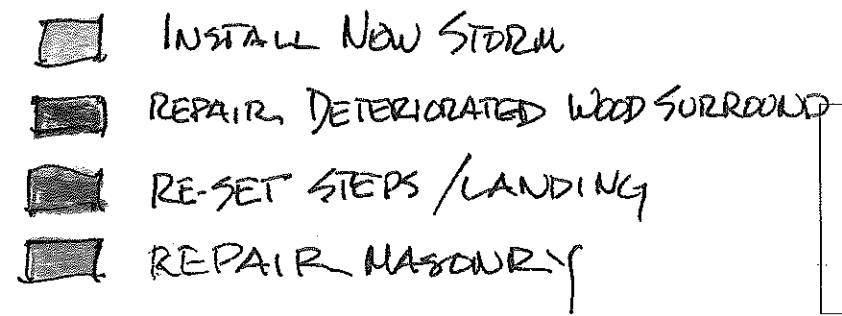 INSTALL NEW STORM
REPAIR DETERIORATED WOOD SURROUND
RE-SET STEPS / LANDING
REPAIR MASONRY